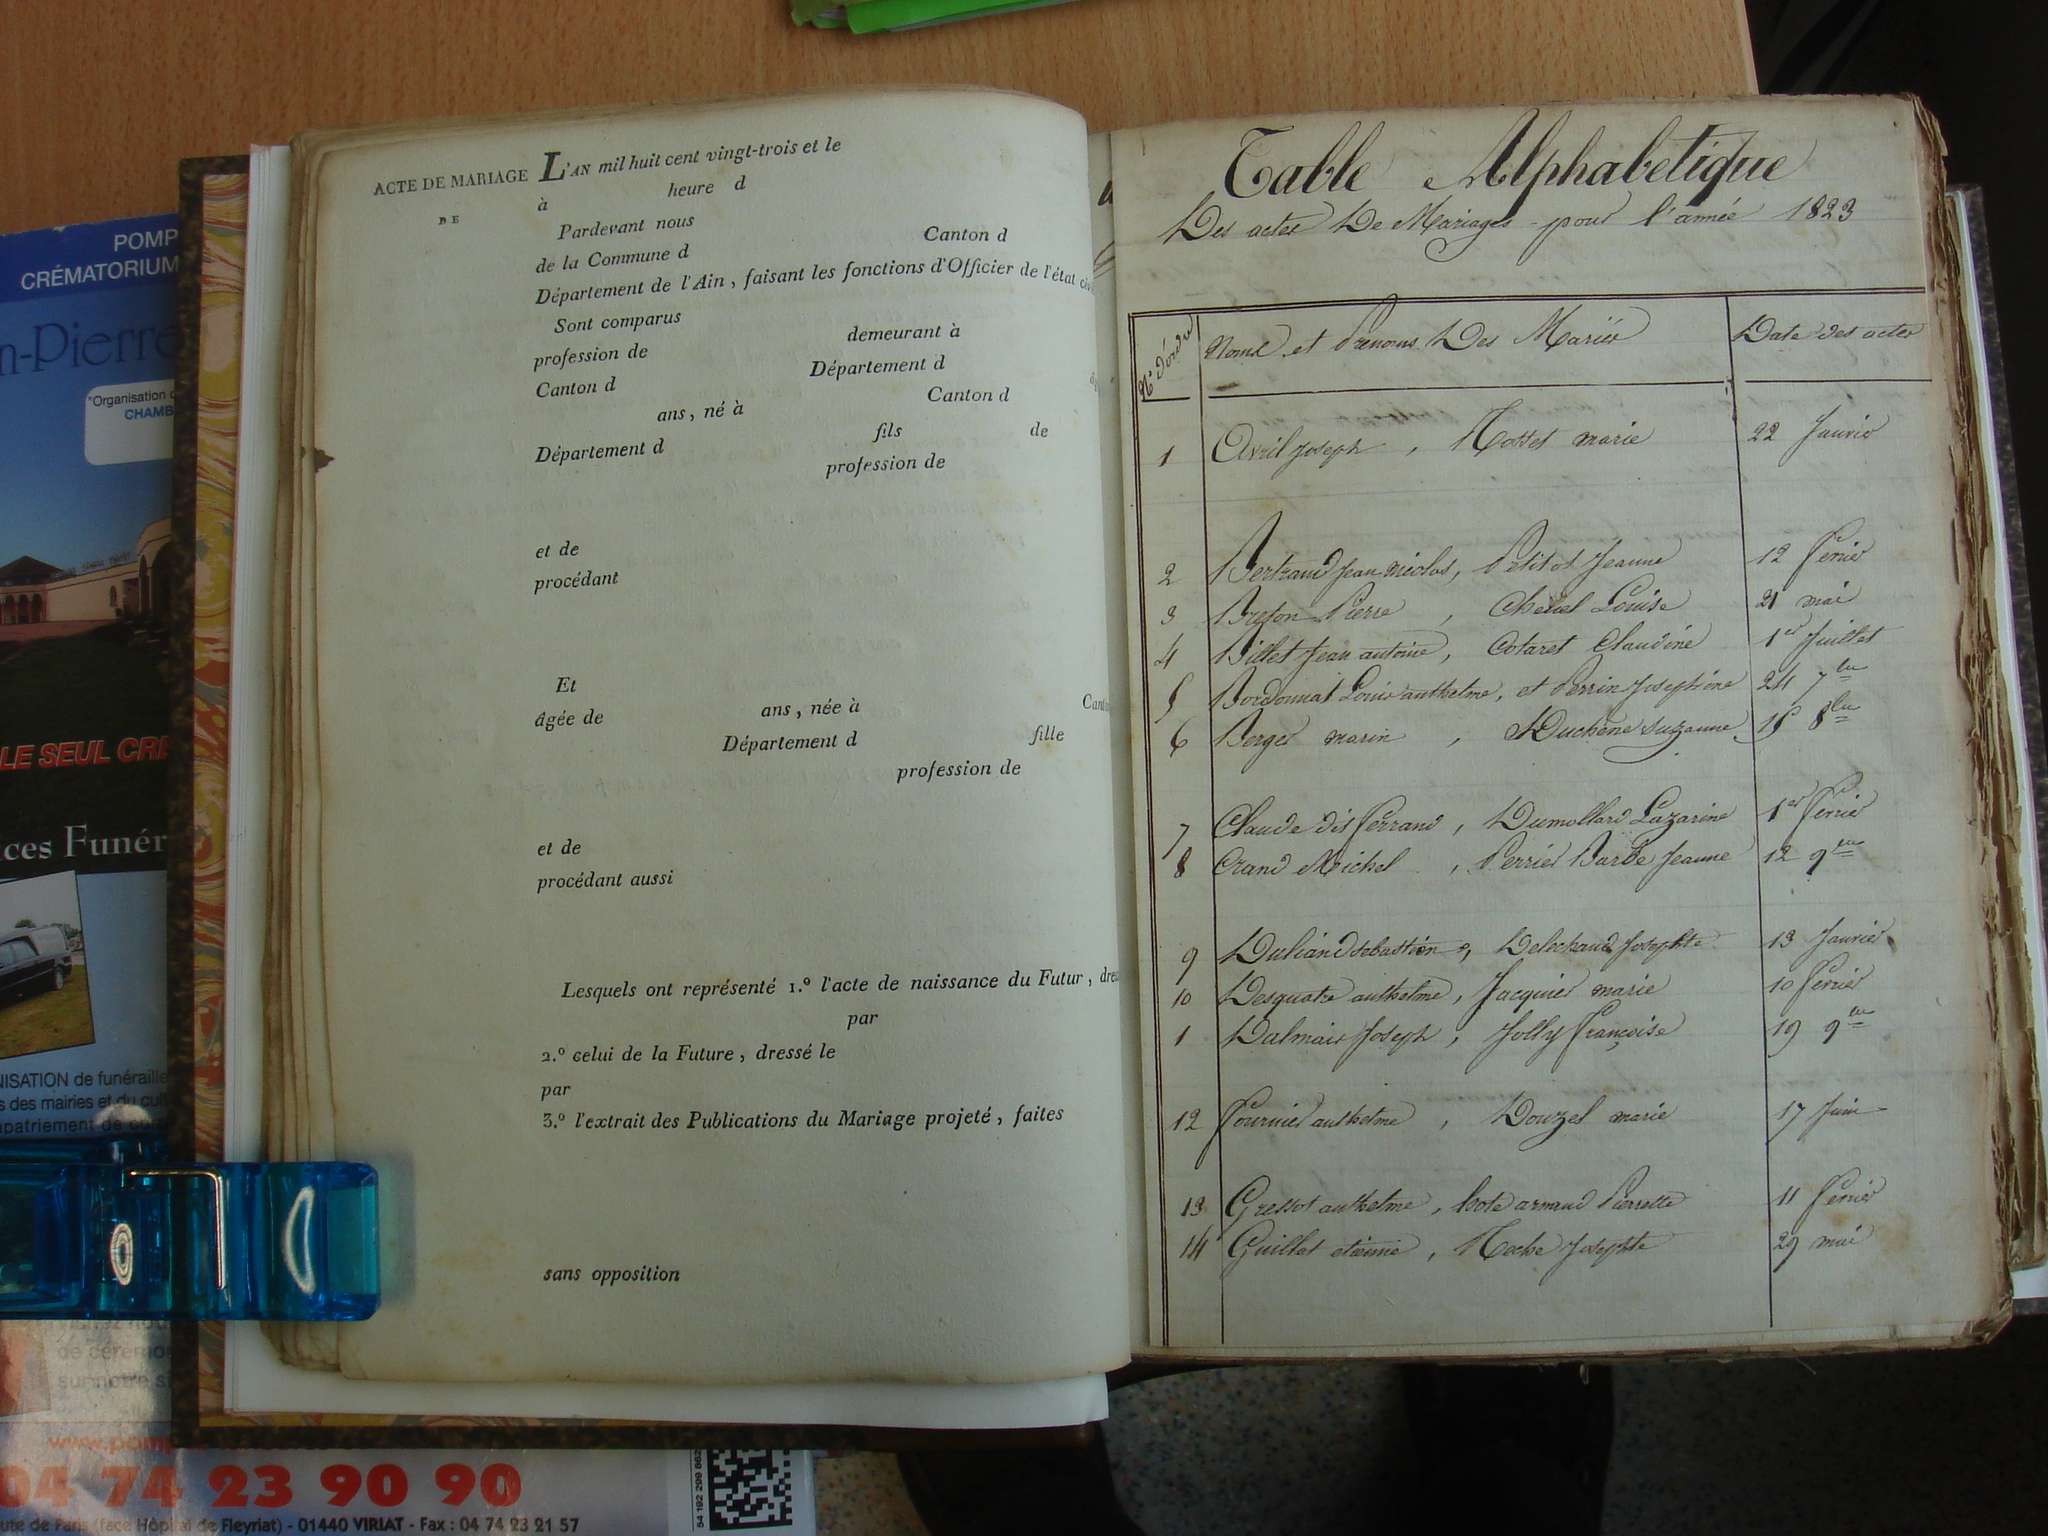 POMP
CRÉMATORIUM
n-Pierre
*Organisation d
CHAMB
LE SEUL CRE
ces Funér
NISATION de funéraille
s des mairies et du cul
apatriement de co
de cérémo
sur notre si
www.pomp
04 74 23 90 90
oute de Paris (face Hôpital de Fleyriat) - 01440 VIRIAT - Fax : 04 74 23 21 57
ACTE DE MARIAGE L'AN mil huit cent vingt-trois et le
DE à heure d
Pardevant nous
de la Commune d Canton d
Département de l'Ain, faisant les fonctions d'Officier de l'état civ
Sont comparus
profession de demeurant à
Canton d Département d
ans, né à Canton d
Département d fils de
profession de
et de
procédant
Et
âgée de ans, née à Cant
Département d fille
profession de
et de
procédant aussi
Lesquels ont représenté 1.º l'acte de naissance du Futur, dres
par
2.º celui de la Future, dressé le
par
3.º l'extrait des Publications du Mariage projeté, faites
sans opposition
Table Alphabetique
Des actes De Mariages pour l'année 1823
Nº d'ordre Noms et Prenoms Des Mariés Date des actes
1 Avril Joseph, Rosset marie 22 Janvier
2 Bertrand Jean nicolas, Petitot Jeanne 12 Fevrier
3 Breton Pierre, Chevel Louise 21 mai
4 Billet Jean antoine, Cotaret Claudine 1er Juillet
5 Bordonnat Louis anthelme, et Perrin Josephine 24 7bre
6 Berger marin, Duchene Suzanne 15 8bre
7 Claude dit Ferrand, Dumollard Lazarine 1er Fevrier
8 Crand Michel, Perrier Barbe Jeanne 12 9bre
9 Duliand sebastien, Delochaud Josephte 13 Janvier
10 Desquatre anthelme, Jacquier marie 10 Fevrier
1 Dalmais Joseph, Jolly Françoise 19 9bre
12 Fournier anthelme, Douzel marie 17 Juin
13 Gressot anthelme, bote armand Pierrette 11 Fevrier
14 Guillot etienne, Roche Josephte 29 mai